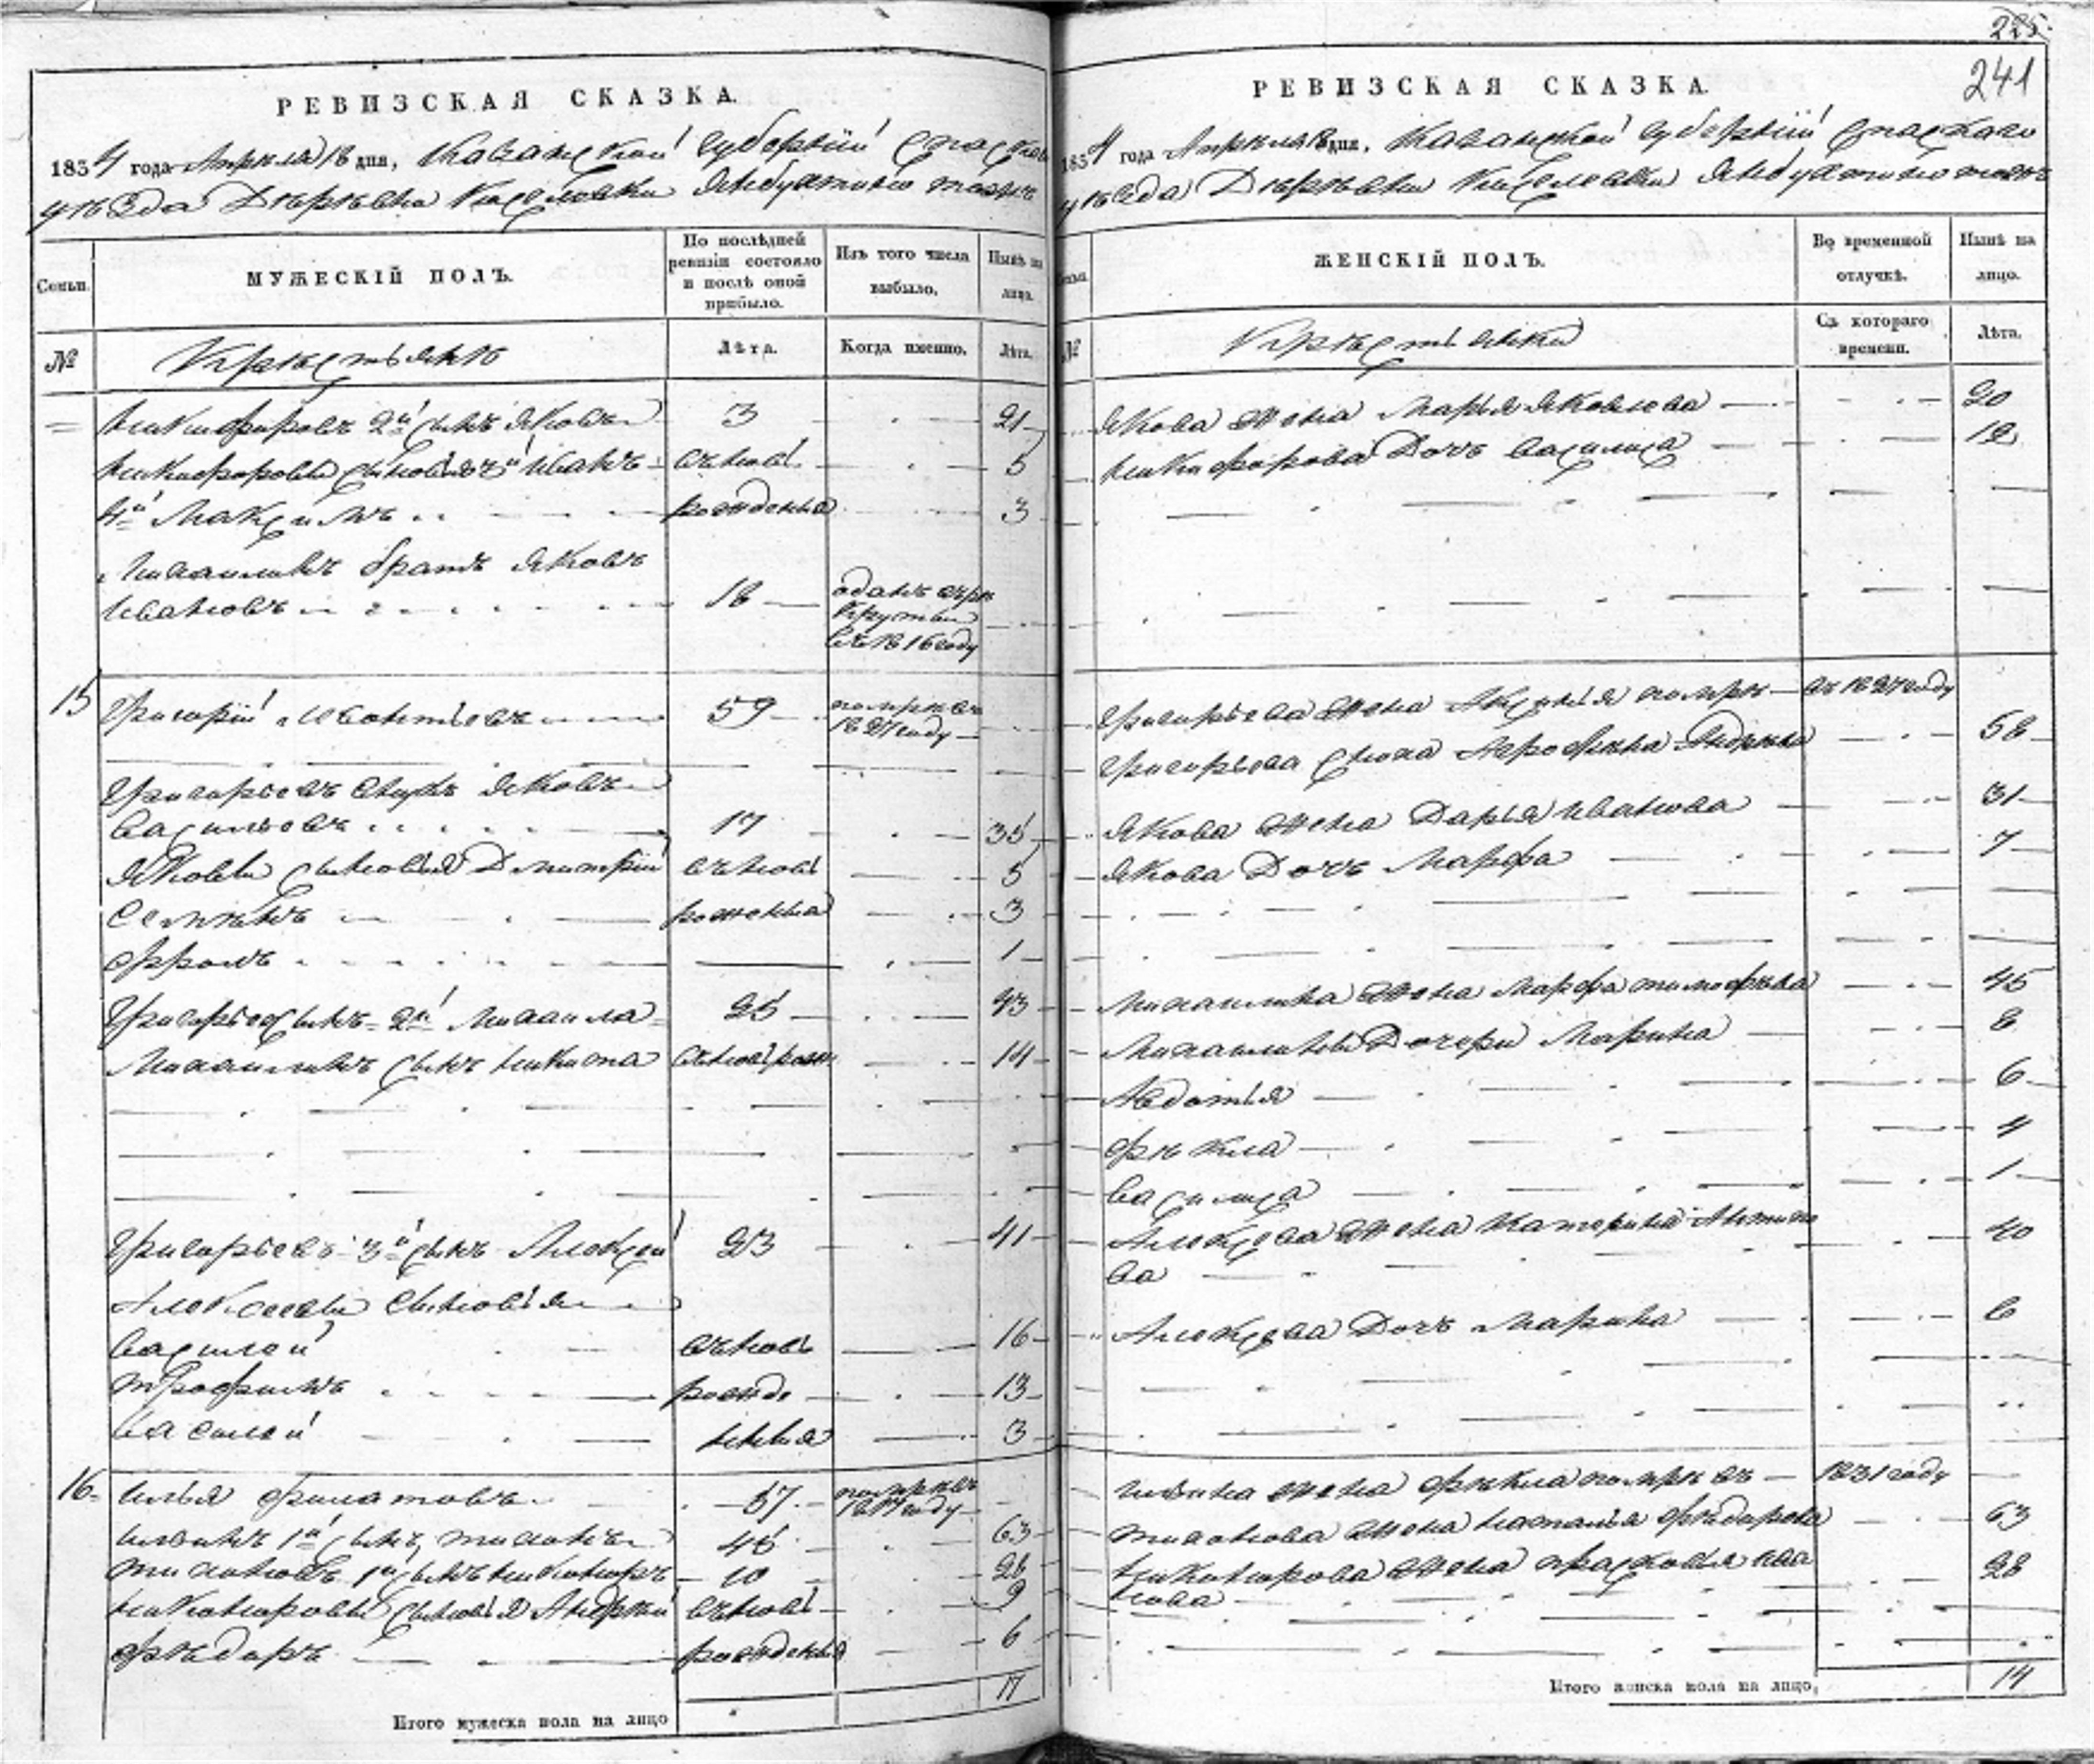 225.
241
РЕВИЗСКАЯ СКАЗКА.
1834 года Апреля 18 дня, Казанской Губернии Спаско
уезда Деревни
Семьи.
МУЖЕСКІЙ ПОЛЪ.
По послѣдней ревизіи состояло и послѣ оной прибыло.
Изъ того числа выбыло.
Нынѣ на лицо.
№
Крестьяне
Лѣта.
Когда именно.
Лѣта.
Никифоровъ 2й сынъ Яковъ 3 21
Никифоровы сыновья 3й Иванъ вновь 5
4й Максимъ рожденна 3
братъ Яковъ
Ивановъ 18
въ 1816 году
15 Григорій Леонтьевъ 59 помре въ
1827 году
Григорьевъ внукъ Яковъ
Васильевъ 17 35
Яковы сыновья Дмитрій вновь 5
Семенъ 3
Фролъ 1
Григорьевъ сынъ 2й Михаила 25 43
Михаилинъ сынъ Никита вновь 14
Григорьевъ 3й сынъ Алексей 23 41
Алексеевы сыновья
Василей вновь 16
Трофимъ рожде 13
Василей нныя 3
16 Илья Филатовъ 57 помре въ
году
Ильинъ 1й сынъ Тихонъ 45 63
Тихоновъ 1й сынъ Никаноръ 10 28
Никаноровы сыновья Андрей вновь 9
Федоръ рожденныя 6
Итого мужеска пола на лицо 17
РЕВИЗСКАЯ СКАЗКА.
1834 года Апреля 18 дня, Казанской Губернии Спаскаго
уезда Деревни
ЖЕНСКІЙ ПОЛЪ.
Во временной отлучкѣ.
Нынѣ на лицо.
№
Крестьянки
Съ котораго времени.
Лѣта.
Якова жена Марья Яковлева 20
Никифорова дочь Василиса 12
Григорьева жена Аксинья помре въ 1827 году
Григорьева сноха 58
Якова жена Дарья Иванова 31
Якова дочь Марфа 7
Михаилина жена Марфа Тимофеева 45
Михаилины дочери Марина 8
Авдотья 6
Фекла 4
Василиса 1
Алексева жена Катерина Антипо
ва 40
Алексева дочь Марина 6
Ильина жена Фекла помре въ 1831 году
Тихонова жена Наталья Федорова 63
Никанорова жена Прасковья Ива
нова 28
Итого женска пола на лицо, 14